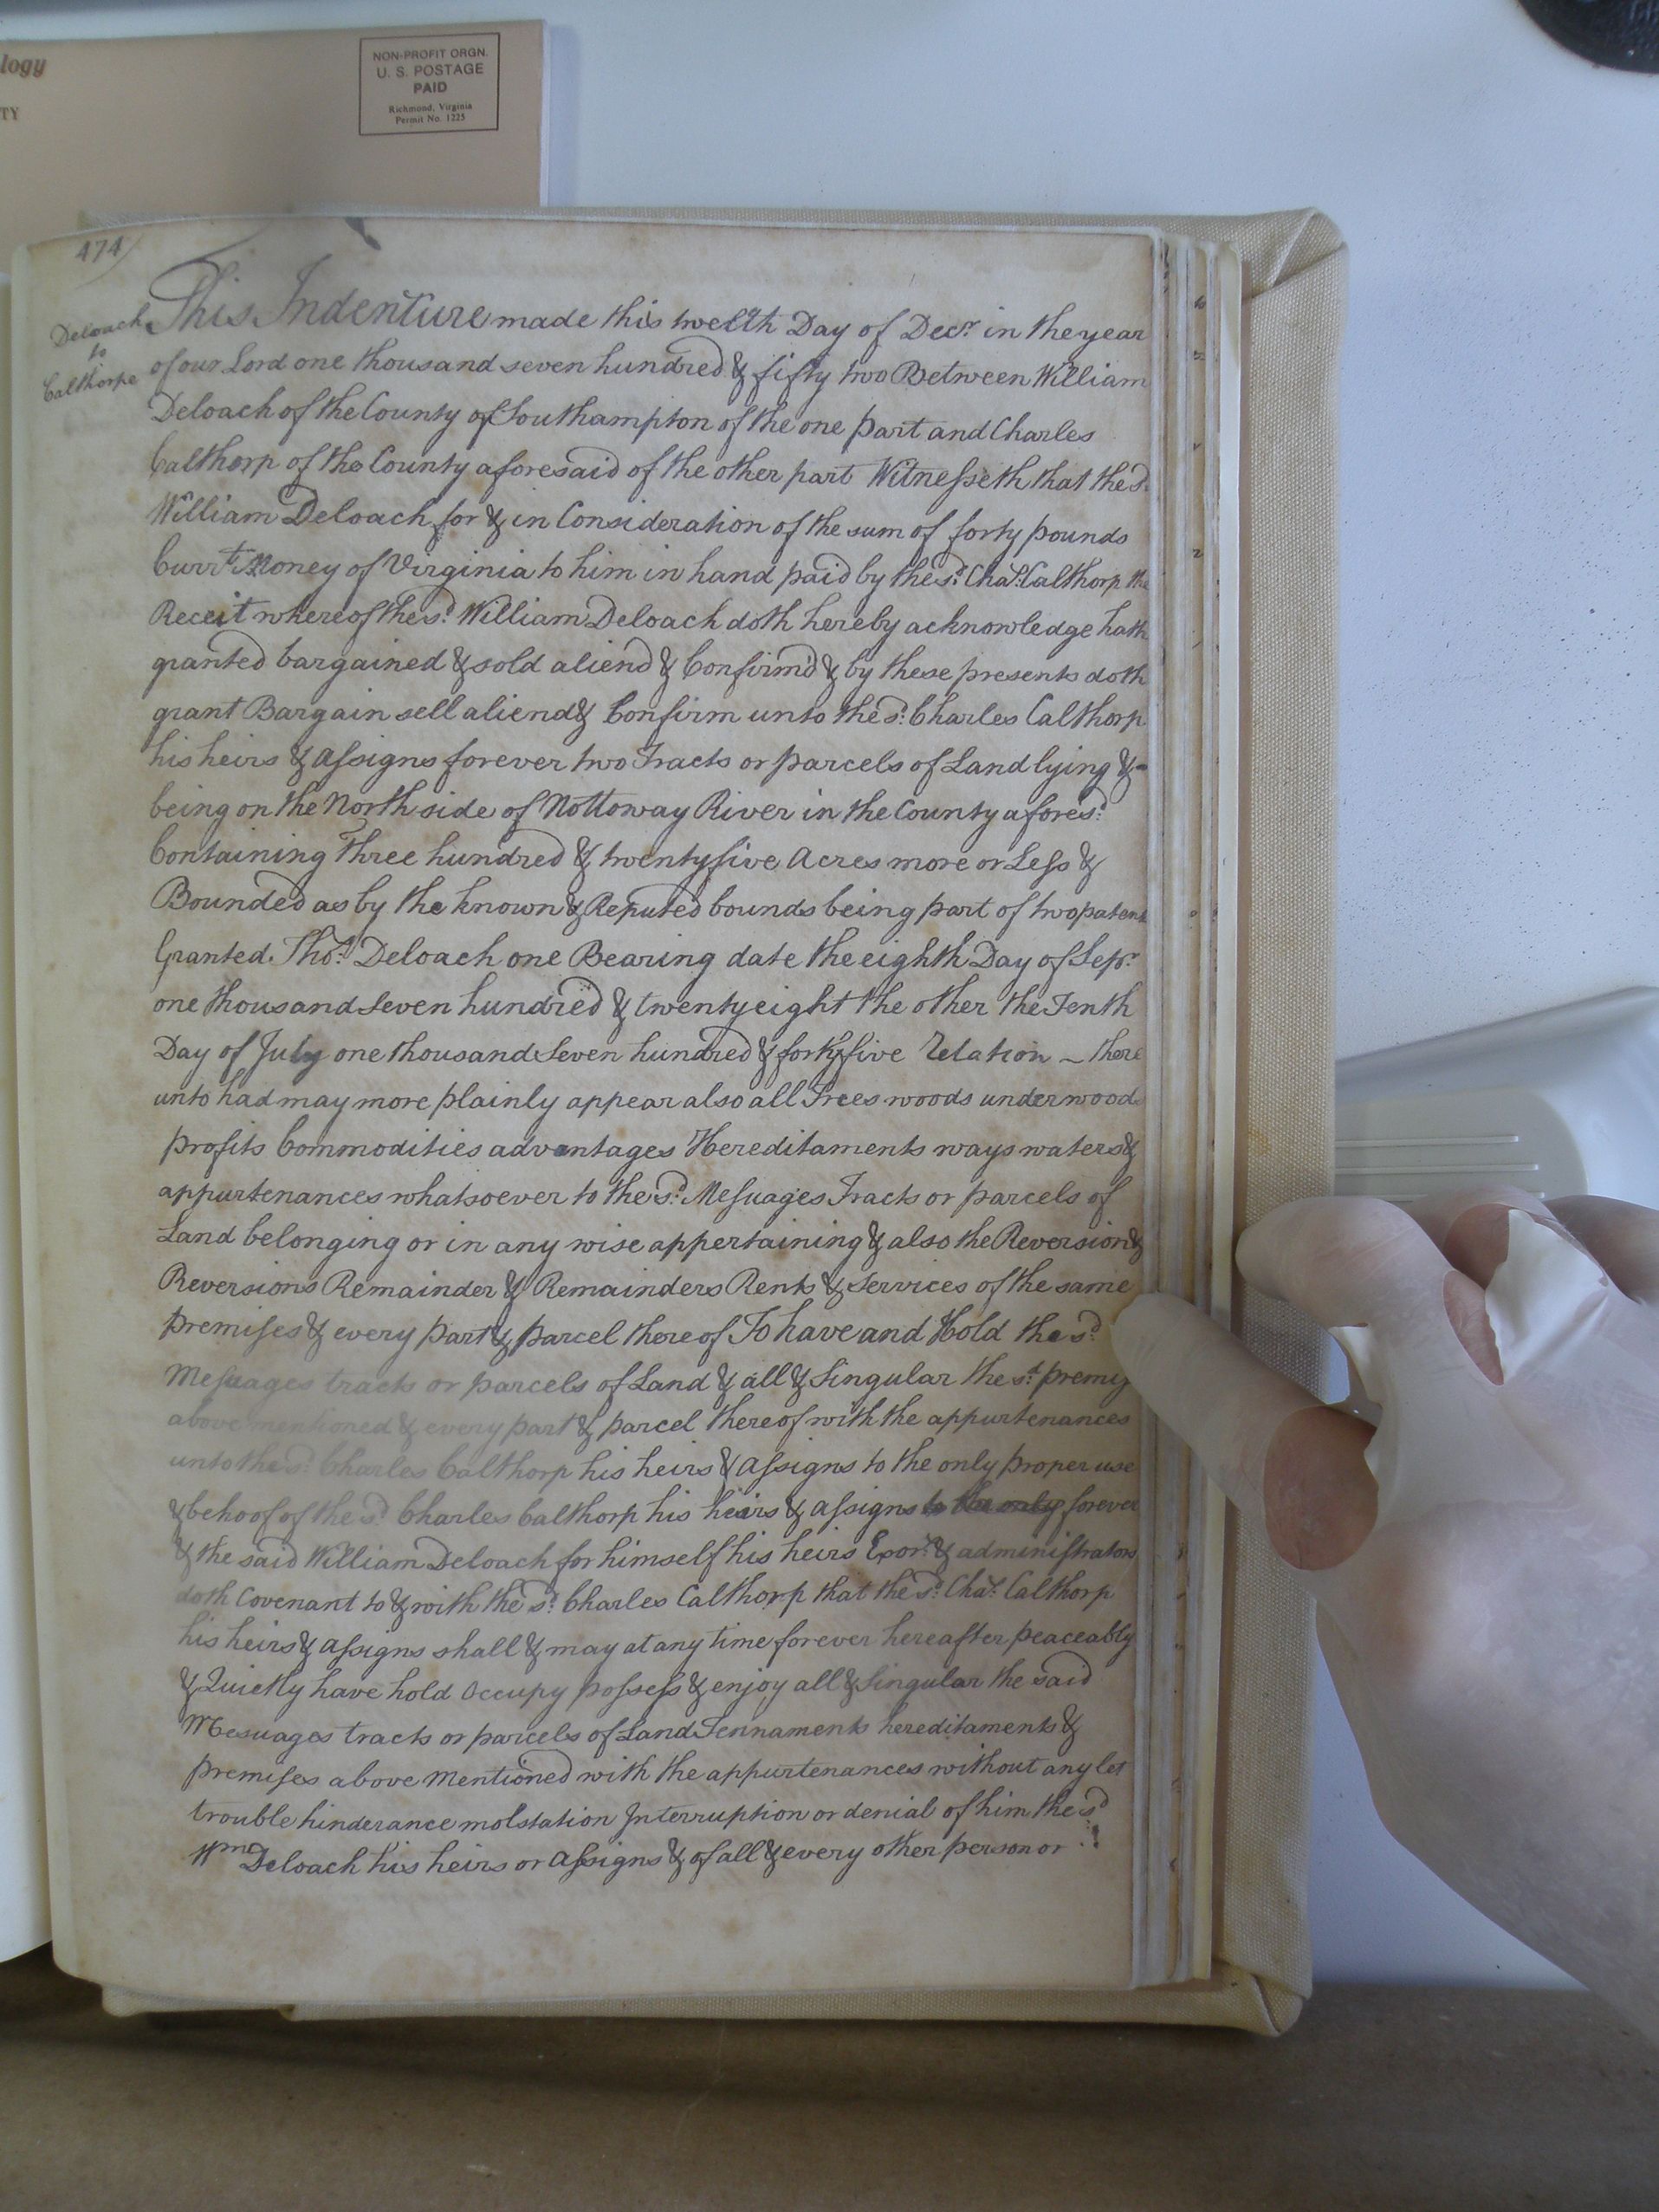 logy
TY
NON-PROFIT ORGN.
U. S. POSTAGE
PAID
Richmond, Virginia
Permit No. 1225
474
Deloach
to
Calthorpe
This Indenture made this twelth Day of Decr. in the year
of our Lord one thousand seven hundred & fifty two Between William
Deloach of the County of Southampton of the one part and Charles
Calthorp of the County aforesaid of the other part Witnesseth that the sd.
William Deloach for & in Consideration of the sum of forty pounds
Currt. Money of Virginia to him in hand paid by the sd. Chas. Calthorp the
Receit whereof the sd. William Deloach doth hereby acknowledge hath
granted bargained & sold aliend & Confirm'd & by these presents doth
grant Bargain sell aliend & Confirm unto the sd. Charles Calthorp
his heirs & assigns forever two Tracts or parcels of Land lying &
being on the North side of Nottoway River in the County aforesd.
Containing Three hundred & twenty five Acres more or Less &
Bounded as by the known & Reputed bounds being part of two patents
Granted Thos. Deloach one Bearing date the eighth Day of Sepr.
one thousand Seven hundred & twenty eight the other the Tenth
Day of July one thousand Seven hundred & forty five Relation there
unto had may more plainly appear also all Trees woods underwoods
profits Commodities advantages Hereditaments ways waters &
appurtenances whatsoever to the sd. Messuages Tracts or parcels of
Land belonging or in any wise appertaining & also the Reversion &
Reversions Remainder & Remainders Rents & Services of the same
premises & every part & parcel thereof To have and Hold the sd.
Messuages tracts or parcels of Land & all & Singular the sd. premis
above mentioned & every part & parcel thereof with the appurtenances
unto the sd. Charles Calthorp his heirs & assigns to the only proper use
& behoof of the sd. Charles Calthorp his heirs & assigns to the only forever
& the said William Deloach for himself his heirs Exors. & administrators
doth Covenant to & with the sd. Charles Calthorp that the sd. Chas. Calthorp
his heirs & assigns shall & may at any time forever hereafter peaceably
& Quietly have hold Occupy possess & enjoy all & Singular the said
Mesuages tracts or parcels of Land Tennaments hereditaments &
premises above Mentioned with the appurtenances without any let
trouble hinderance molstation Interruption or denial of him the sd
Wm Deloach his heirs or assigns & of all & every other person or